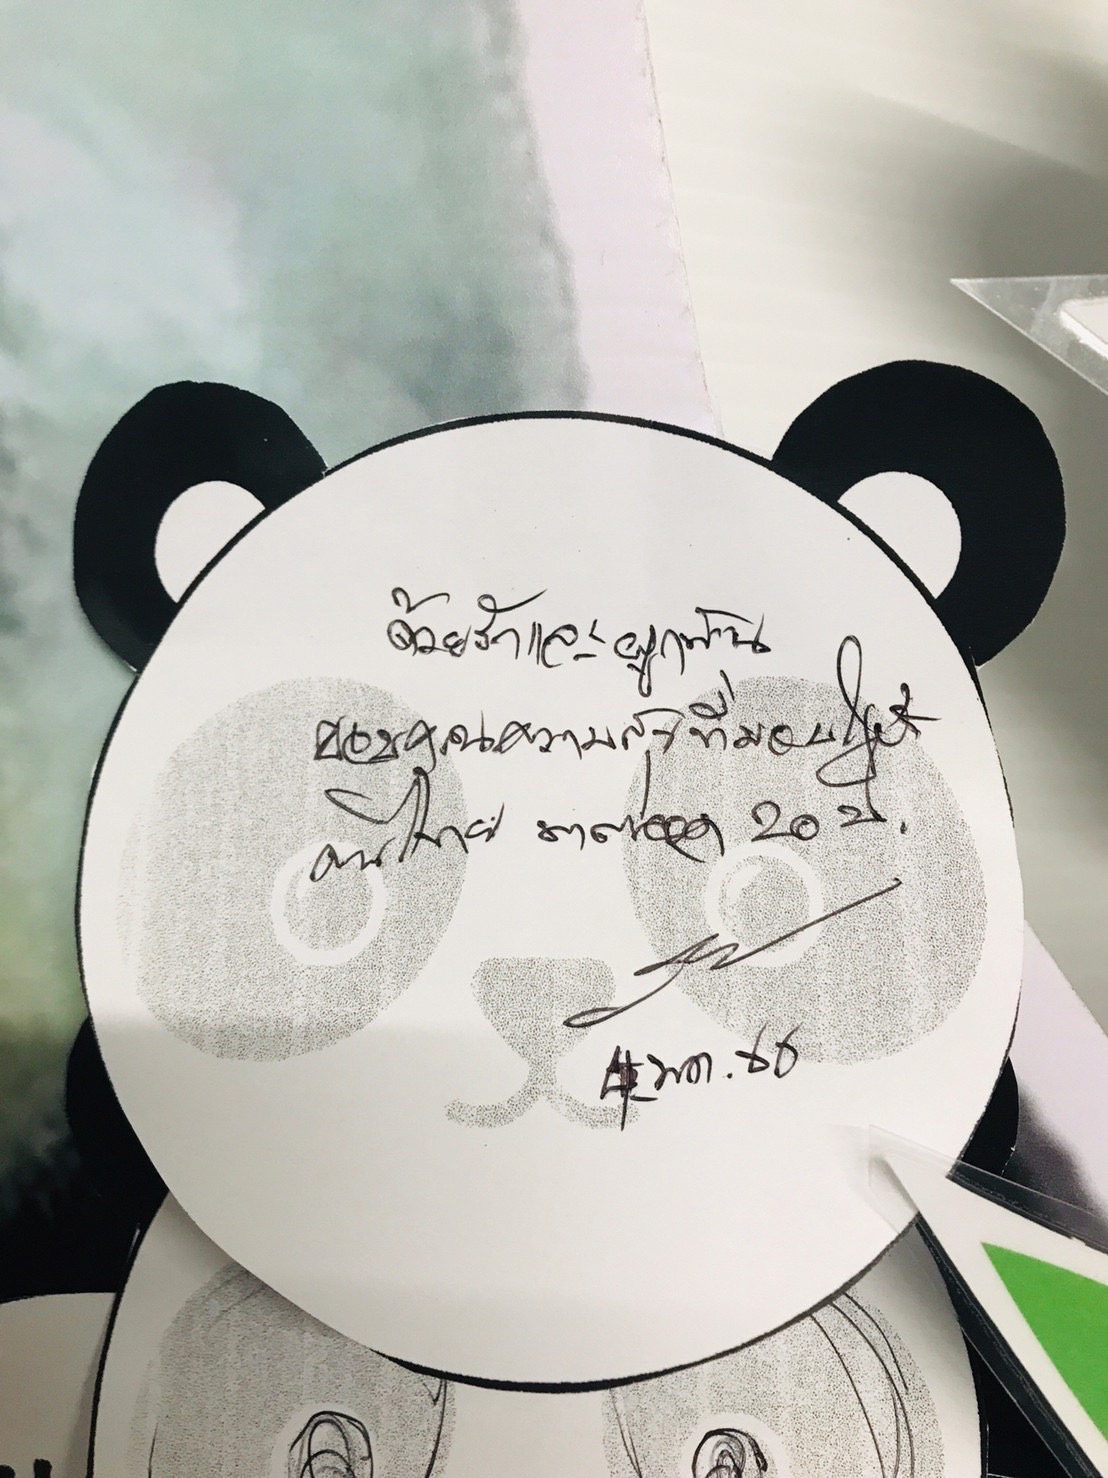 ด้วยรักและผูกพัน
ขอบคุณความสุขที่มอบให้
คนไทย มาตลอด 20 ปี.
4 พค. 66